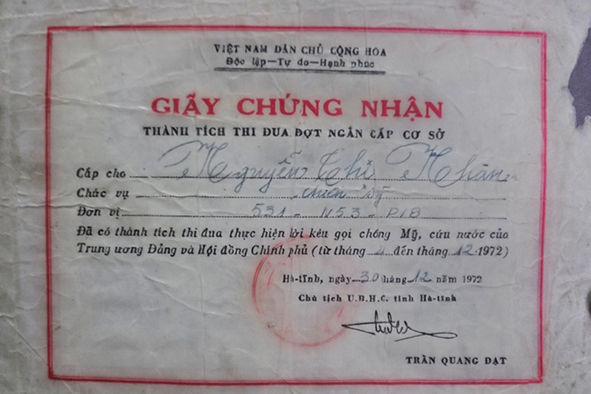 VIỆT NAM DÂN CHỦ CỘNG HÒA
Độc lập—Tự do—Hạnh phúc
GIẤY CHỨNG NHẬN
THÀNH TÍCH THI ĐUA ĐỢT NGẮN CẤP CƠ SỞ
Cấp cho Nguyễn Thị Nhân
Chức vụ chiến sỹ
Đơn vị 531 - N53 - P18
Đã có thành tích thi đua thực hiện lời kêu gọi chống Mỹ, cứu nước của
Trung ương Đảng và Hội đồng Chính phủ (từ tháng 4 đến tháng 12-1972)
Hà-tĩnh, ngày 30 tháng 12 năm 1972
Chủ tịch U.B.H.C. tỉnh Hà-tĩnh
TRẦN QUANG ĐẠT